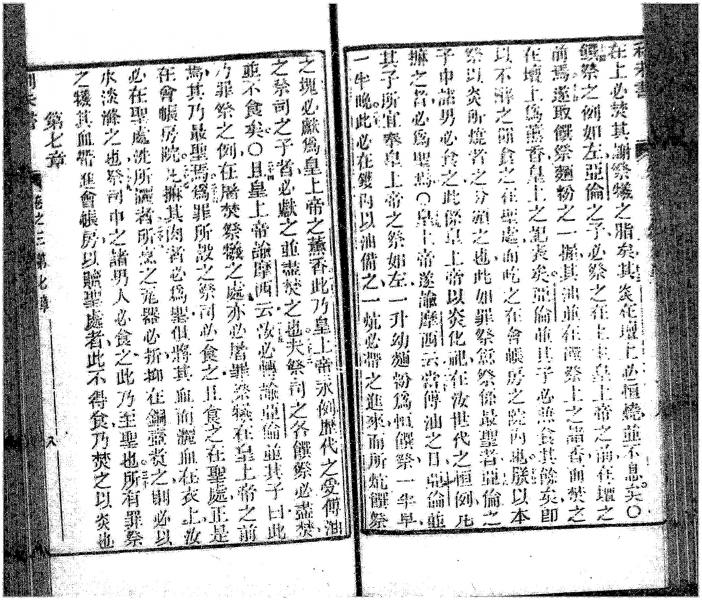 在上必焚其謝祭犧之脂矣其炎在壇上必恒燒並不息矣〇
饌祭之例如左亞倫之子必祭之在上主皇上帝之前在壇之
前焉遂取饌祭麵粉之一掬其油並在饌祭上之諸香而焚之
在壇上爲薰香皇上之記矣亞倫並其子必無食其餘矣卽
以不酵之餅食之在聖處而吃之在會帳房之院內也朕以本
祭以炎所燒者之分頒之也此如罪祭愆祭係最聖者亞倫之
子中諸男必食之此係皇上帝以炎化祀在汝世代之恒例凡
摸之者必爲聖焉〇皇上帝遂諭摩西云當傅油之日亞倫並
其子所宜奉皇上帝之祭如左一升幼麵粉爲恒饌祭一半早
一半晚此必在鑊內以油備之一炕必帶之進來而所炕饌祭
之塊必獻爲皇上帝之薰香此乃皇上帝永例歷代之受傅油
之祭司之子者必獻之並盡焚之也夫祭司之各饌祭必盡焚
並不食矣〇且皇上帝諭摩西云汝必轉諭亞倫並其子曰此
乃罪祭之例在屠焚祭犧之處亦必屠罪祭犧在皇上帝之前
焉其乃最聖焉爲罪所設之祭司必食之且食之在聖處正是
在會帳房院也摸其肉者必爲聖但將其血而灑血在衣上汝
必在聖處洗所灑者所烹之瓦器必折抑在銅壺煮之則必以
水淡滌之也祭司中之諸男人必食之此乃至聖也所有罪祭
之犧其血帶進會帳房以贖聖處者此不得食乃焚之以炎也
第七章
利未書 卷之三第七章 八